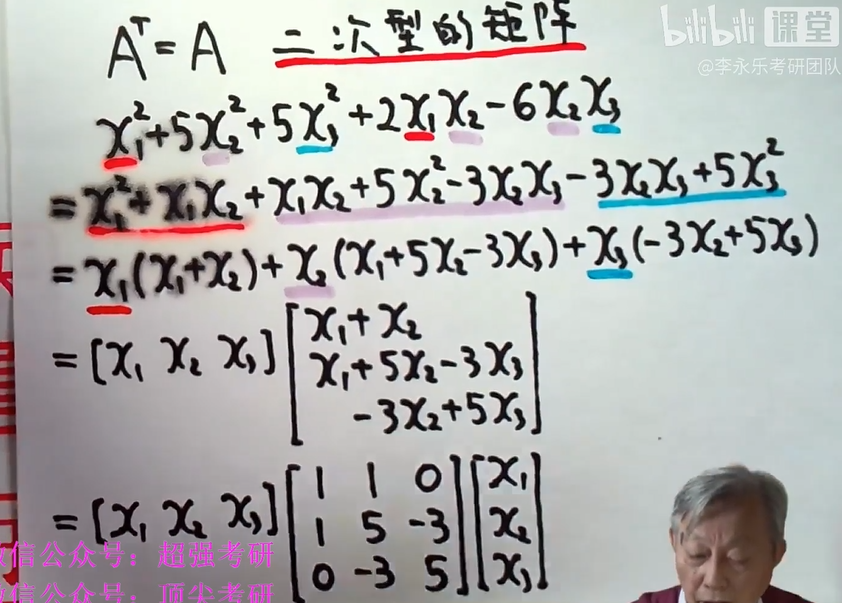 bilibili 课堂
@李永乐考研团队
Aᵀ = A 二次型的矩阵
x₁² + 5x₂² + 5x₃² + 2x₁x₂ - 6x₂x₃
= x₁² + x₁x₂ + x₁x₂ + 5x₂² - 3x₂x₃ - 3x₂x₃ + 5x₃²
= x₁(x₁+x₂) + x₂(x₁+5x₂-3x₃) + x₃(-3x₂+5x₃)
= [x₁ x₂ x₃] [x₁+x₂
x₁+5x₂-3x₃
-3x₂+5x₃]
= [x₁ x₂ x₃] [1 1 0] [x₁]
[1 5 -3] [x₂]
[0 -3 5] [x₃]
微信公众号：超强考研
微信公众号：顶尖考研